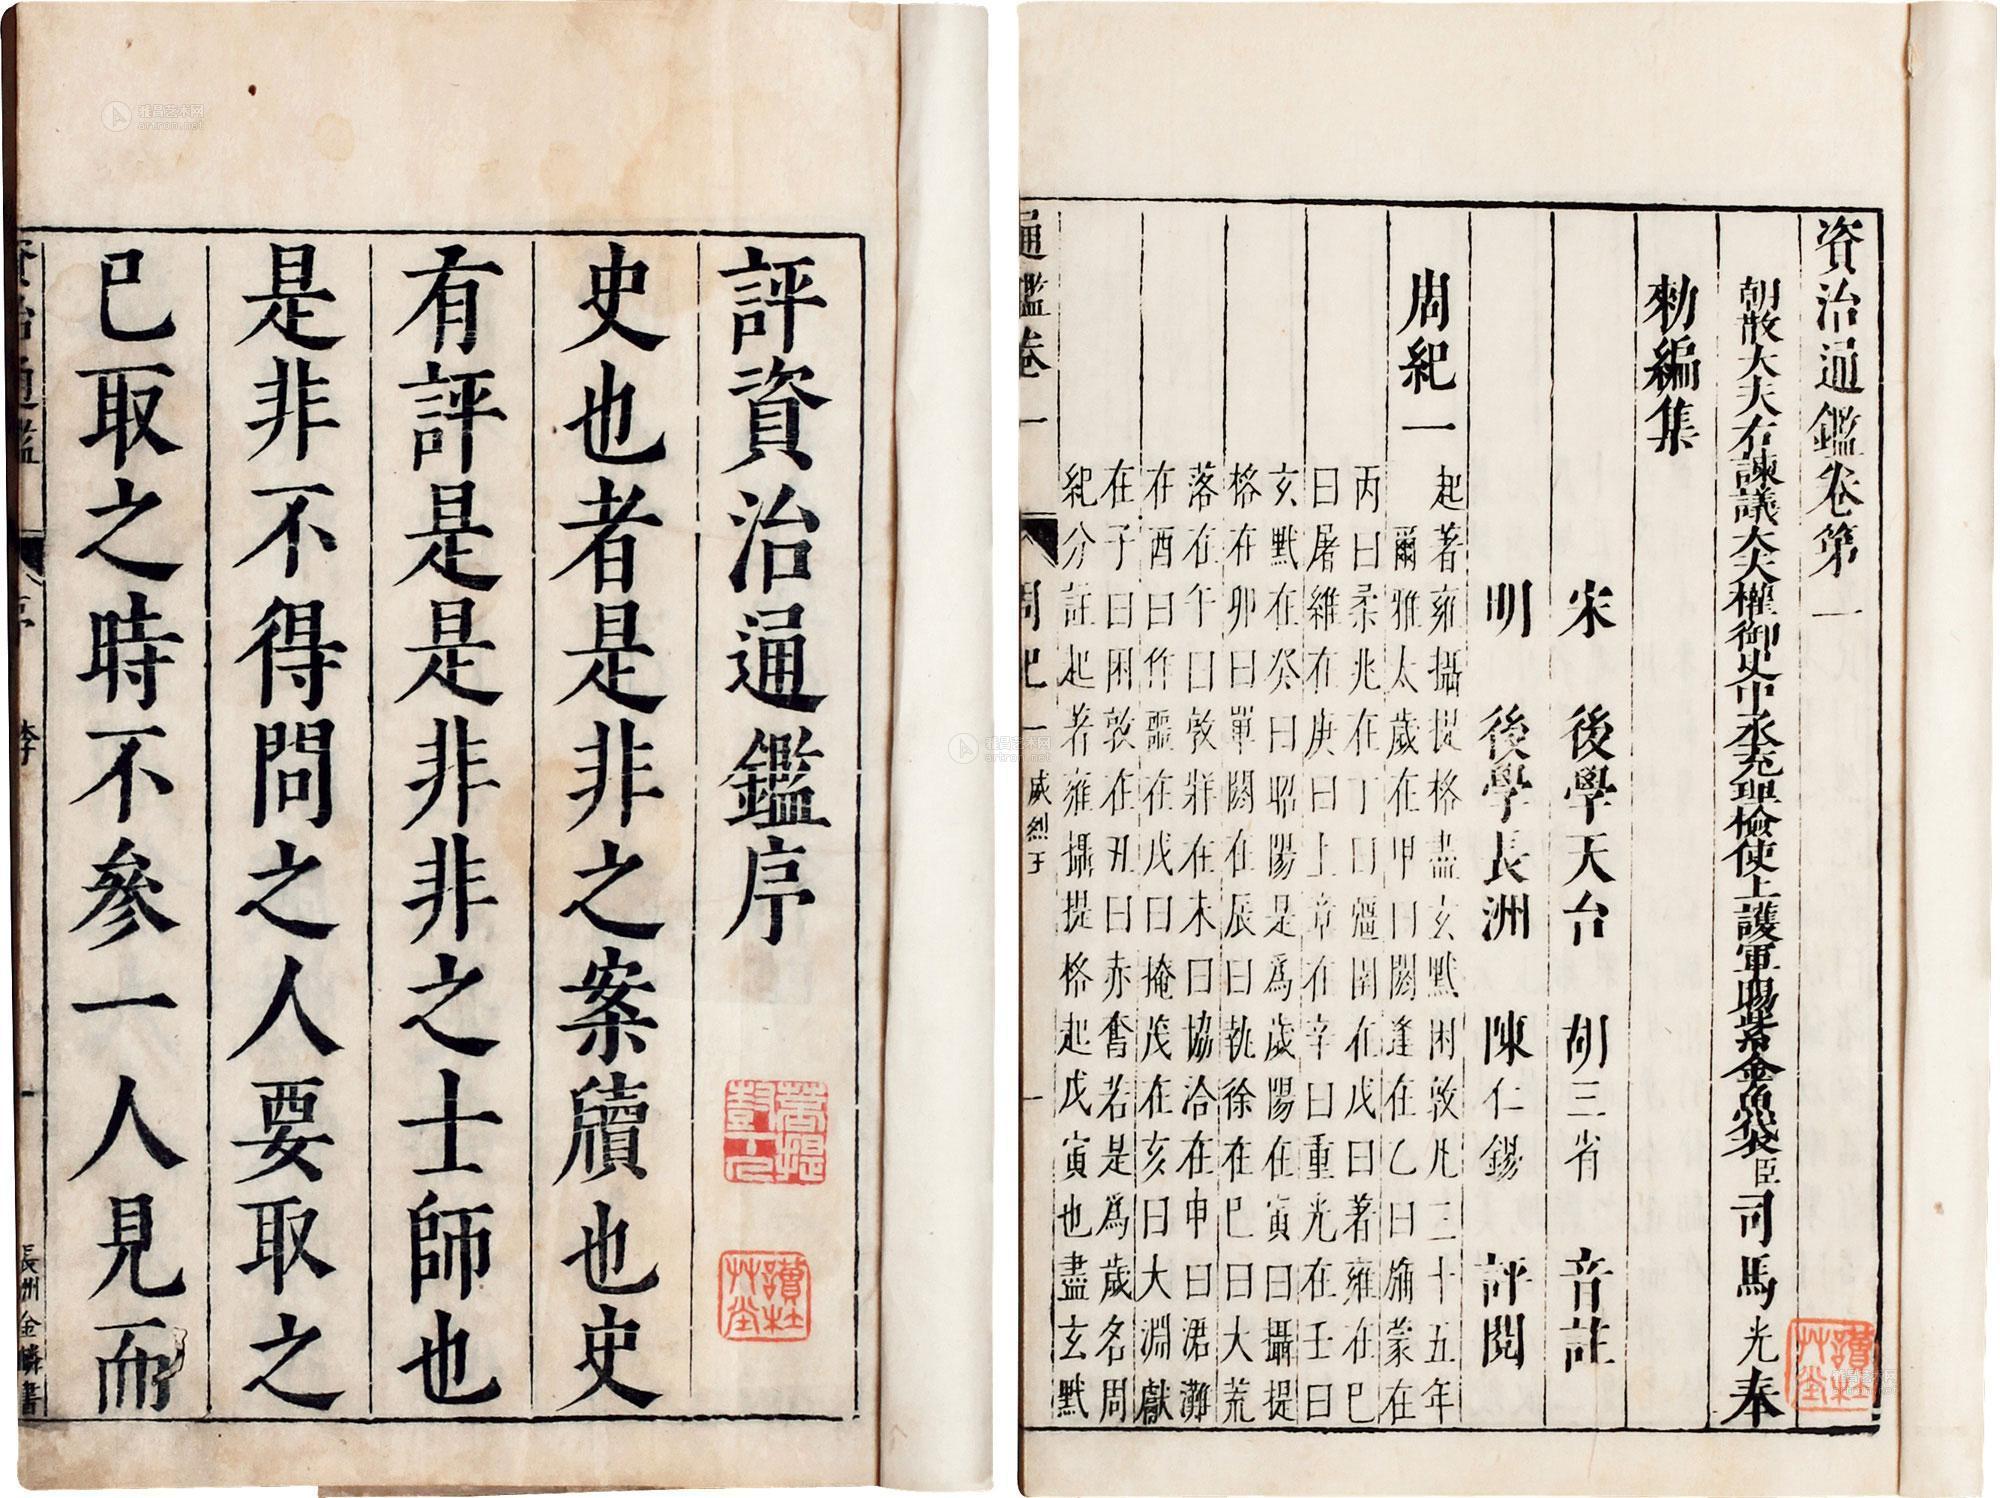 評資治通鑑序
史也者是非之案牘也史
有評是是非非之士師也
是非不得問之人要取之
已取之時不參一人見而
資治通鑑 序 李 一 長洲金麟書
讀杜艸堂
資治通鑑卷第一
朝散大夫右諫議大夫權御史中丞充理檢使上護軍賜紫金魚袋臣司馬光奉
勑編集
宋 後學天台 胡三省 音註
明 後學長洲 陳仁錫 評閱
周紀一 起著雍攝提格盡玄黓困敦凡三十五年
爾雅太歲在甲曰閼逢在乙曰旃蒙在
丙曰柔兆在丁曰彊圉在戊曰著雍在巳
曰屠維在庚曰上章在辛曰重光在壬曰
玄黓在癸曰昭陽是爲歲陽在寅曰攝提
格在卯曰單閼在辰曰執徐在巳曰大荒
落在午曰敦牂在未曰協洽在申曰涒灘
在酉曰作噩在戊曰掩茂在亥曰大淵獻
在子曰困敦在丑曰赤奮若是爲歲名周
紀分註起著雍攝提格起戊寅也盡玄黓
通鑑卷一 周紀一 威烈王 一
讀杜艸堂
雅昌艺术网
artron.net